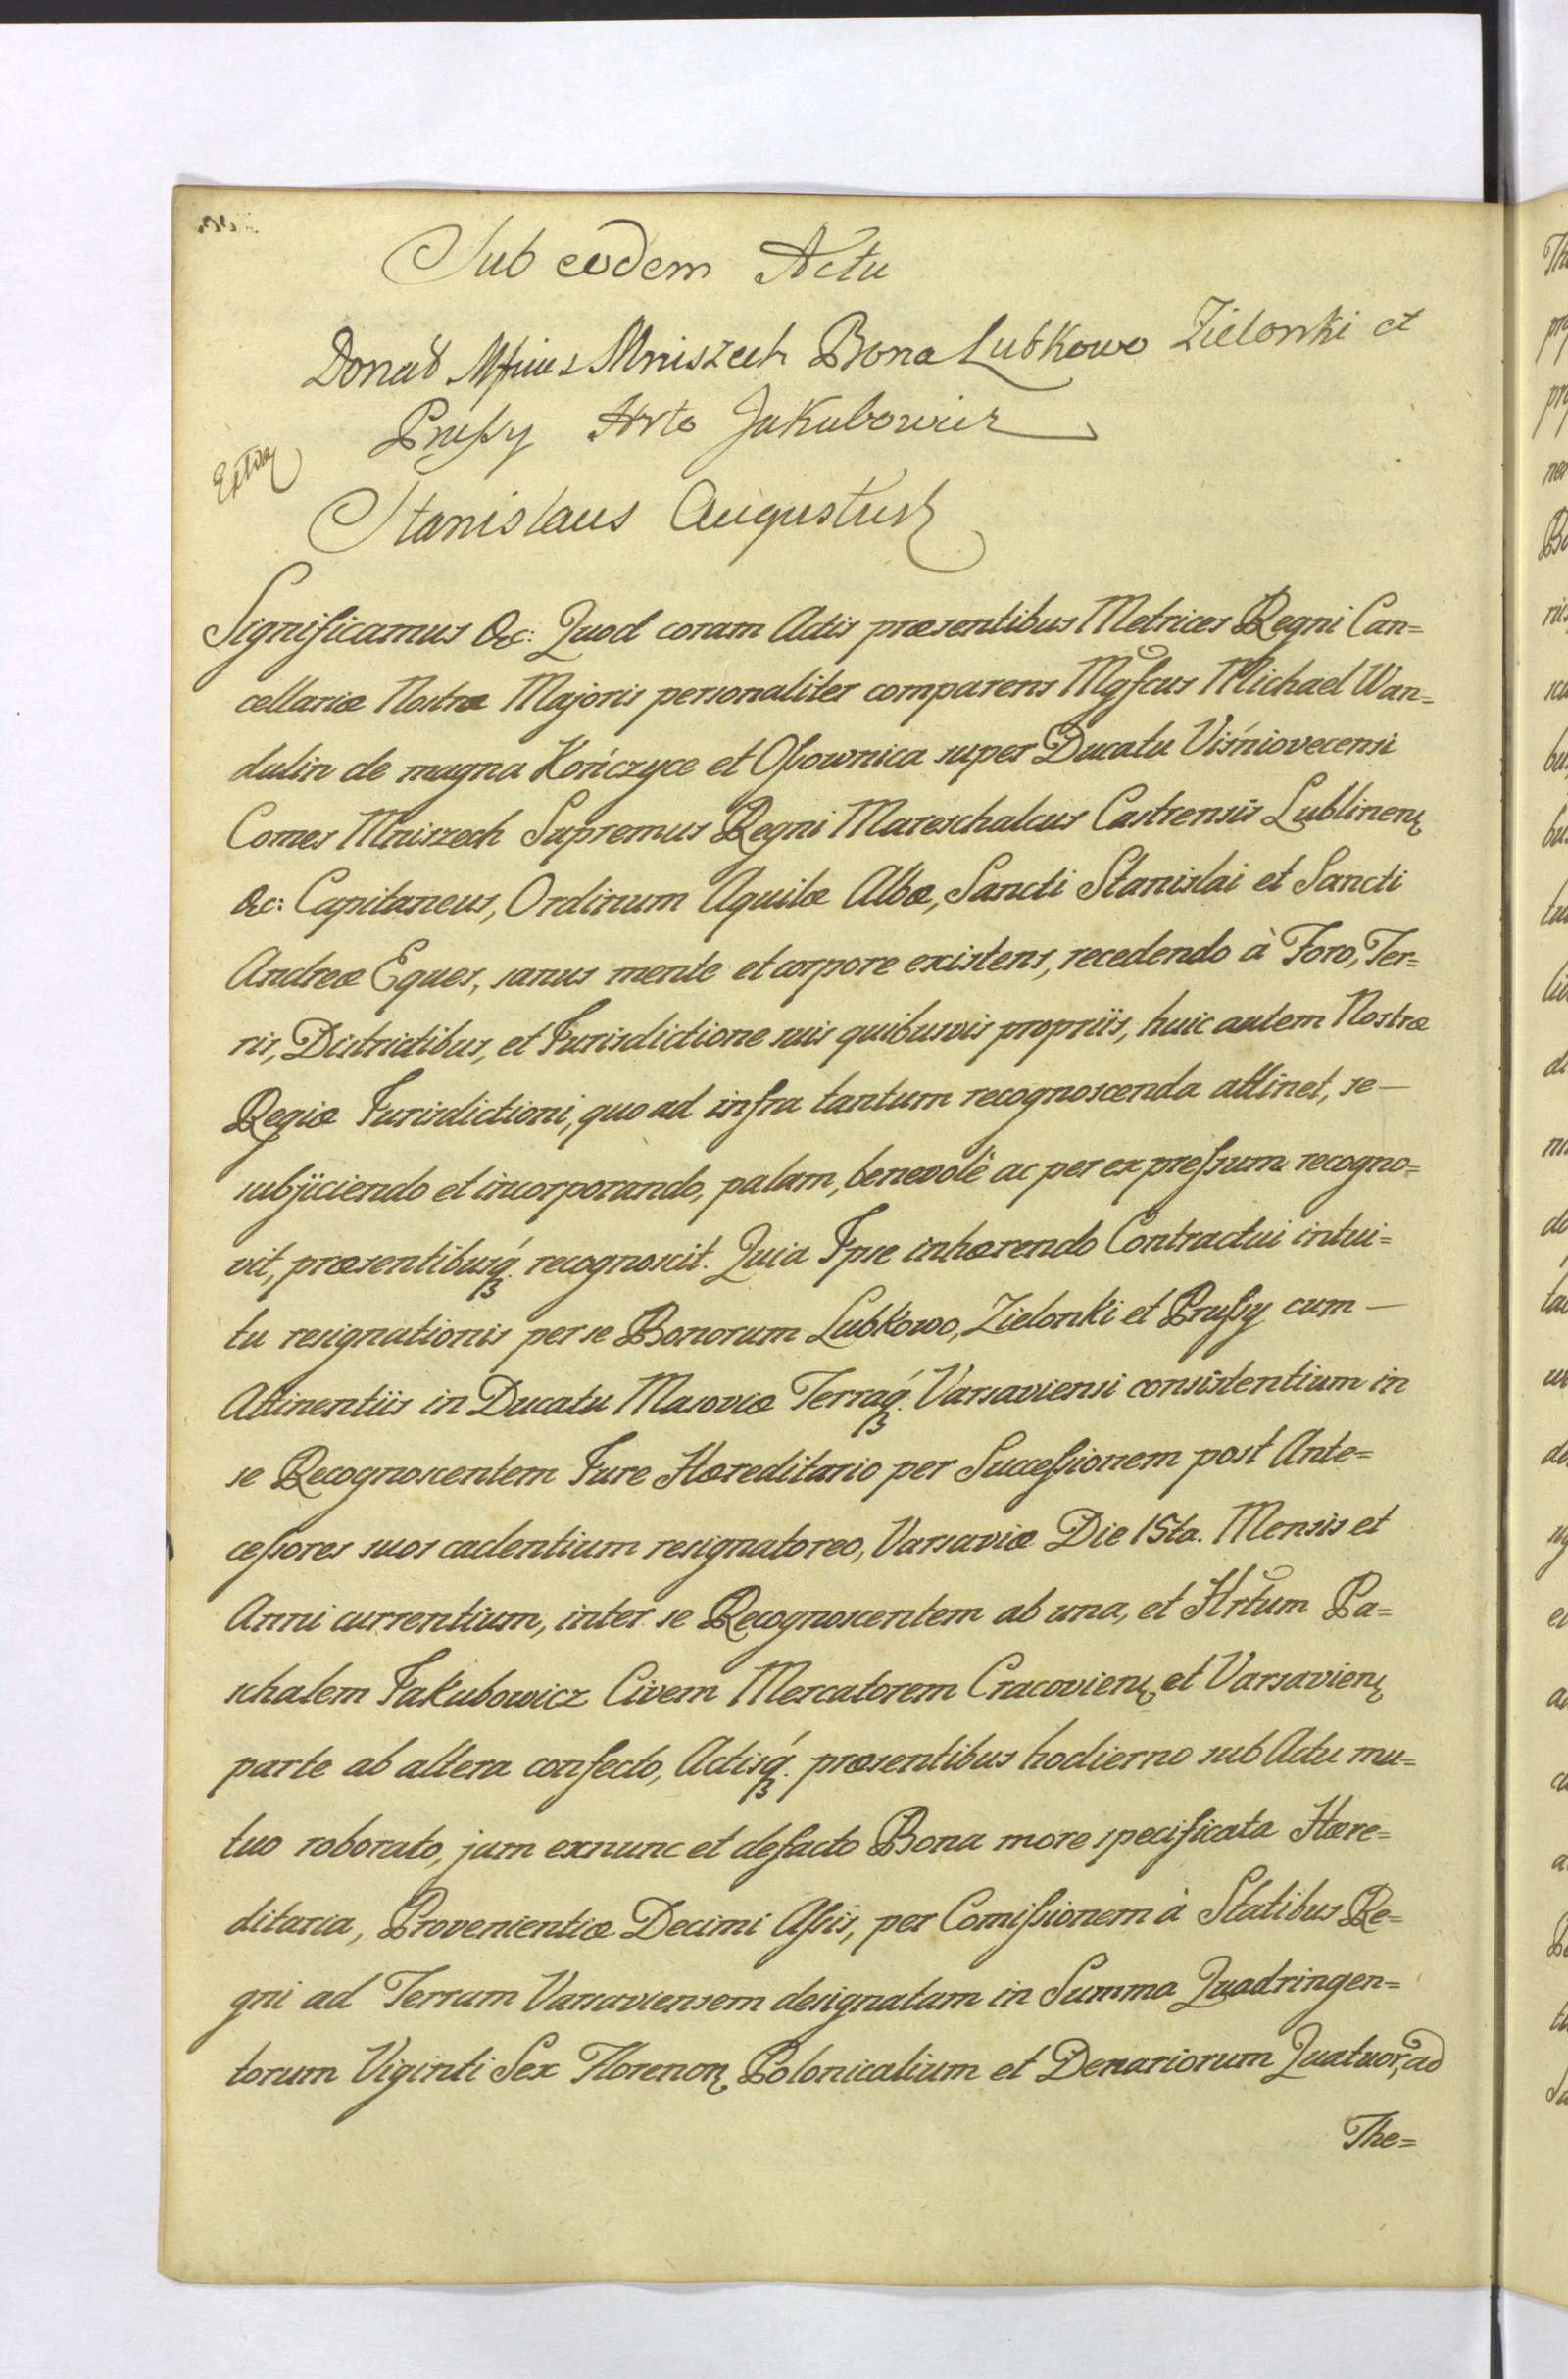 Sub eodem Actu
Donat Mfcus Mniszech Bona Lubkowo Zielonki et
Prussy Hrto Jakubowicz
Extra
Stanislaus Augustus
Significamus &c: Quod coram Actis præsentibus Metrices Regni Can=
cellariæ Nostræ Majoris personaliter comparens Mgfcus Michael Wan=
dalin de magna Kończyce et Ossownica super Ducatu Viśniovecensi
Comes Mniszech Supremus Regni Mareschalcus Castrensis Lublinen̄
&c: Capitaneus, Ordinum Aquilæ Albæ, Sancti Stanislai et Sancti
Andreæ Eques, sanus mente et corpore existens, recedendo à Foro, Ter=
ris, Districtibus, et Jurisdictione suis quibusvis propriis, huic autem Nostræ
Regiæ Jurisdictioni, quo ad infra tantum recognoscenda attinet, se —
subjiciendo et incorporando, palam, benevolè ac per expressum recogno=
vit, præsentibusq́ꝫ recognoscit. Quia Ipse inhærendo Contractui intui=
tu resignationis per se Bonorum Lubkowo, Zielonki et Prussy cum —
Attinentiis in Ducatu Masoviæ Terraq́ꝫ Varsaviensi consistentium in
se Recognoscentem Jure Hæreditario per Successionem post Ante=
cessores suos cadentium resignatoreo, Varsaviæ Die 15ta. Mensis et
Anni currentium, inter se Recognoscentem ab una, et Hrtum Pa=
schalem Jakubowicz Civem Mercatorem Cracovien̄ et Varsavien̄
parte ab altera confecto, Actisq́ꝫ præsentibus hodierno sub Actu mu=
tuo roborato, jam exnunc et defacto Bona more specificata Hære=
ditaria, Provenientiæ Decimi Assis, per Comissionem à Statibus Re=
gni ad Terram Varsaviensem designatam in Summa Quadringen=
torum Viginti Sex Florenoꝝ Polonicalium et Denariorum Quatuor, ad
The=